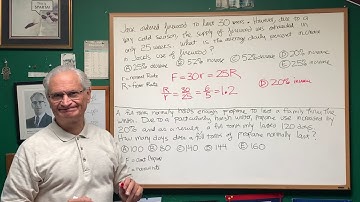 Jack ordered firewood to last 30 weeks. However, due to a
very cold season, the supply of firewood was exhausted in
only 25 weeks. What is the average daily percent increase
in Jack's use of firewood?
Ⓐ 25% decrease Ⓑ 52% increase Ⓒ 52% decrease Ⓓ 20% increase
Ⓔ 25% increase
r = normal Rate
R = faster Rate
F = 30r = 25R
R/r = 30/25 = 6/5 = 1.2
Ⓓ 20% increase
A full tank normally holds enough propane to last a family thru the
winter. Due to a particularly harsh winter, propane use increased by
20% and as a result, a full tank only lasted 120 days.
How many days does a full tank of propane normally last?
Ⓐ 100 Ⓑ 80 Ⓒ 140 Ⓓ 144 Ⓔ 160